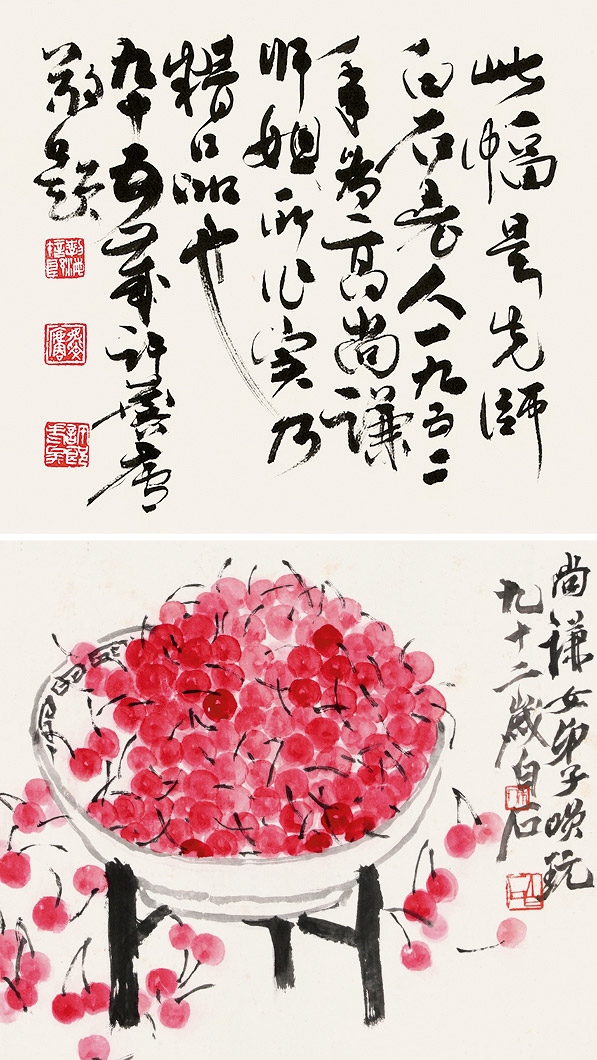 此幅是先師
白石老人一九五二
年為高尚謙
師姐所作实乃
精品也
九十五歲許麐廬
敬题
尚謙女弟子玩
九十二歲白石